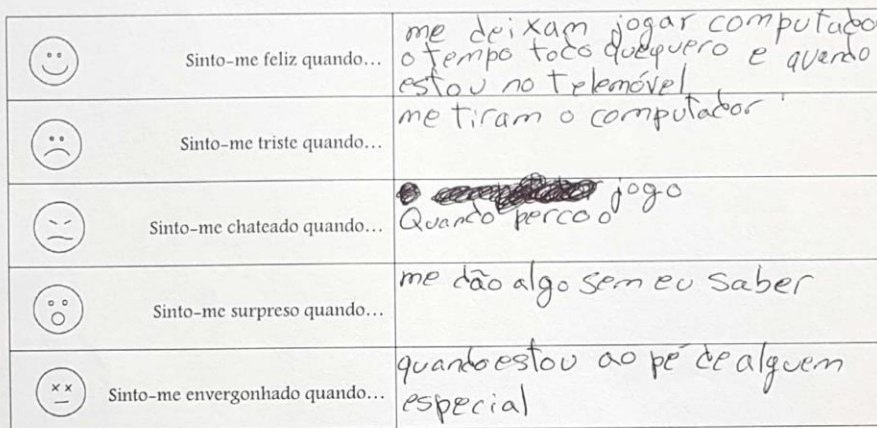 Sinto-me feliz quando...
me deixam jogar computado
o tempo todo quequero e quando
estou no telemóvel
Sinto-me triste quando...
me tiram o computador
Sinto-me chateado quando...
jogo
Quando perco o
Sinto-me surpreso quando...
me dão algo sem eu saber
Sinto-me envergonhado quando...
quando estou ao pé de alguem
especial